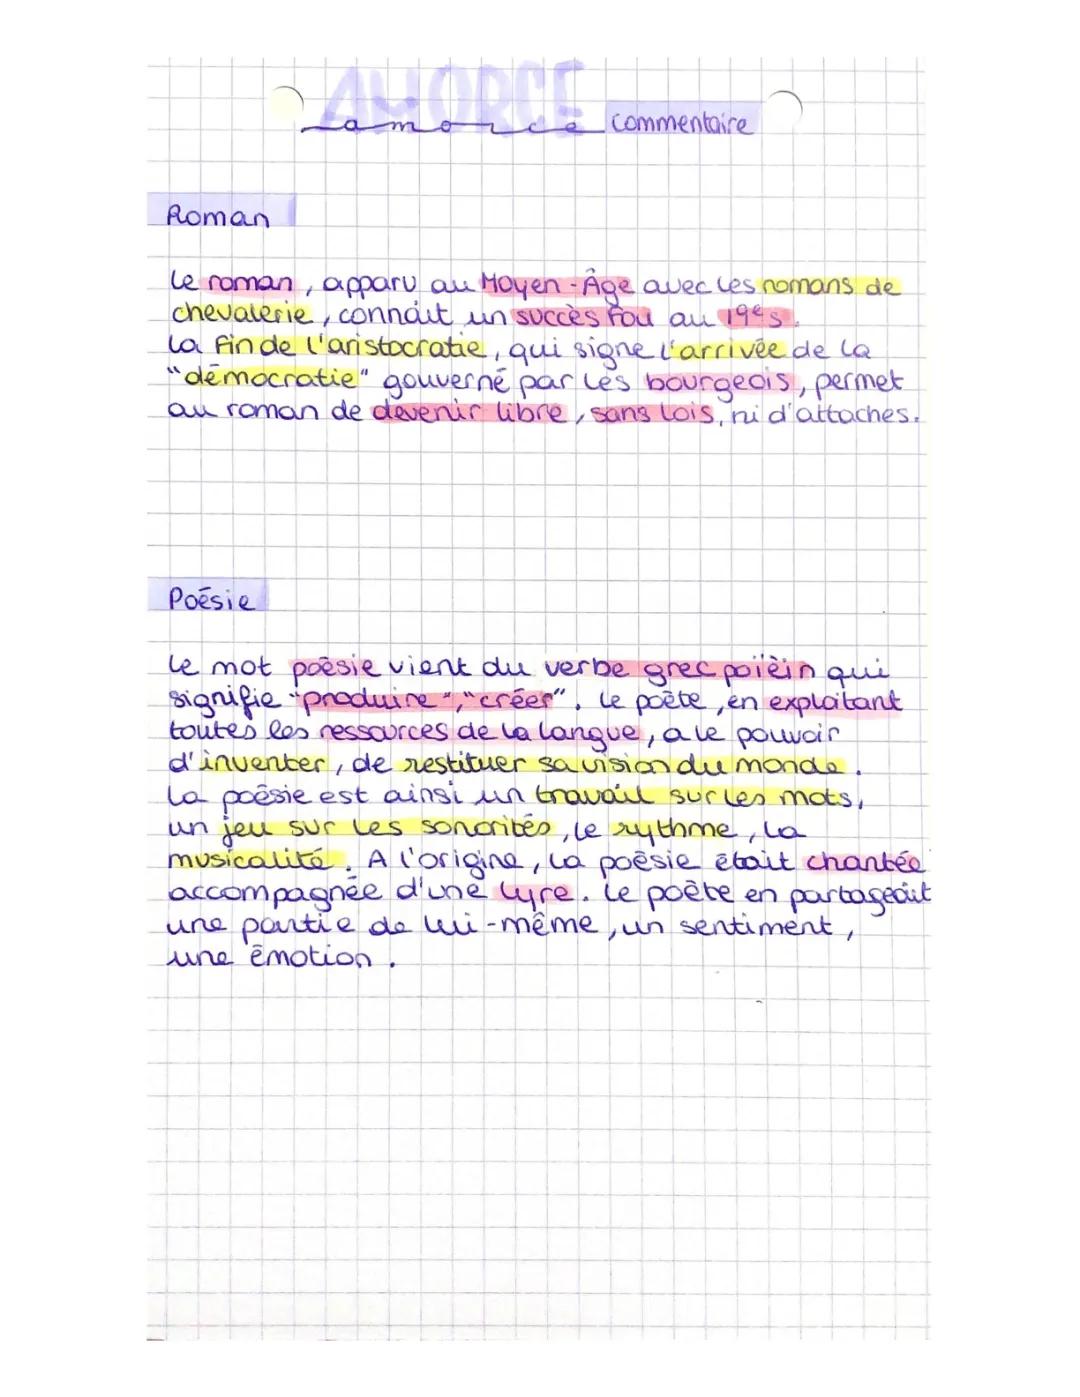 AMORCE
amorce commentaire
Roman
Le roman, apparu au Moyen-Âge avec les romans de
chevalerie, connaît un succès fou au 19e s.
La fin de l'aristocratie, qui signe l'arrivée de la
"démocratie" gouverné par les bourgeois, permet
au roman de devenir libre, sans lois, ni d'attaches.
Poésie
Le mot poésie vient du verbe grec poïèin qui
signifie "produire", "créer". Le poète, en exploitant
toutes les ressources de la langue, a le pouvoir
d'inventer, de restituer sa vision du monde.
La poésie est ainsi un travail sur les mots,
un jeu sur les sonorités, le rythme, la
musicalité. A l'origine, la poésie était chantée
accompagnée d'une lyre. Le poète en partageait
une partie de lui-même, un sentiment,
une émotion.